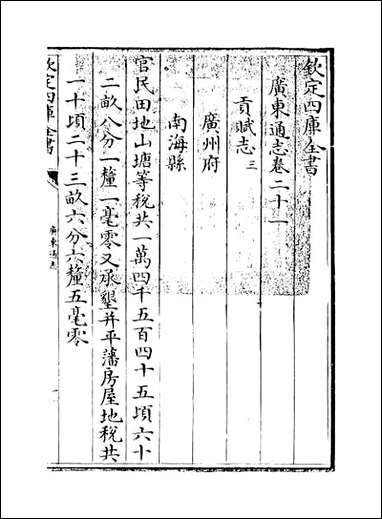 欽定四庫全書
廣東通志卷二十一
貢賦志三
廣州府
南海縣
官民田地山塘等稅共一萬四千五百四十五頃六十
二畝八分一釐一毫零又承墾并平藩房屋地稅共
一十頃二十三畝六分六釐五毫零
欽定四庫全書
廣東通志